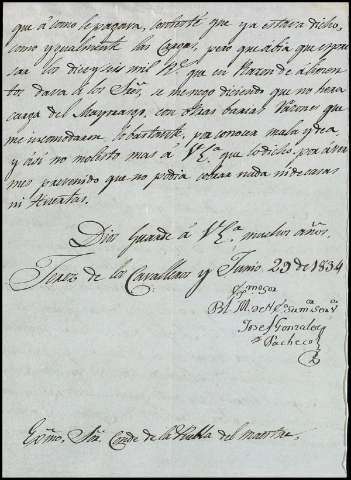 que á como le pagava, contesté que ya estava dicho,
como ygualmente las Cargas, pero que abia que espre
sar los diez y seis mil Rs. que en Razon de alimen
tos dava á los Sres, se nego diciendo que no hera
carga del Mayorazgo, con otras barias Razones que
me incomodaron lo bastante, y a conocer mala ydea,
y asi no molesto mas á V.E.a que lo dicho, por aver
mes prevenido que no podia cobrar nada ni de casas
ni Huertas.
Dios Guarde á V.E.a muchos años.
Jerez de los Cavalleros y Junio 29 de 1834
Exmo Sor
B.L.M. de V.E.a su mas
Josef Gonzalez
Pacheco
Exmo. Sor. Conde de la Puebla del maestre.